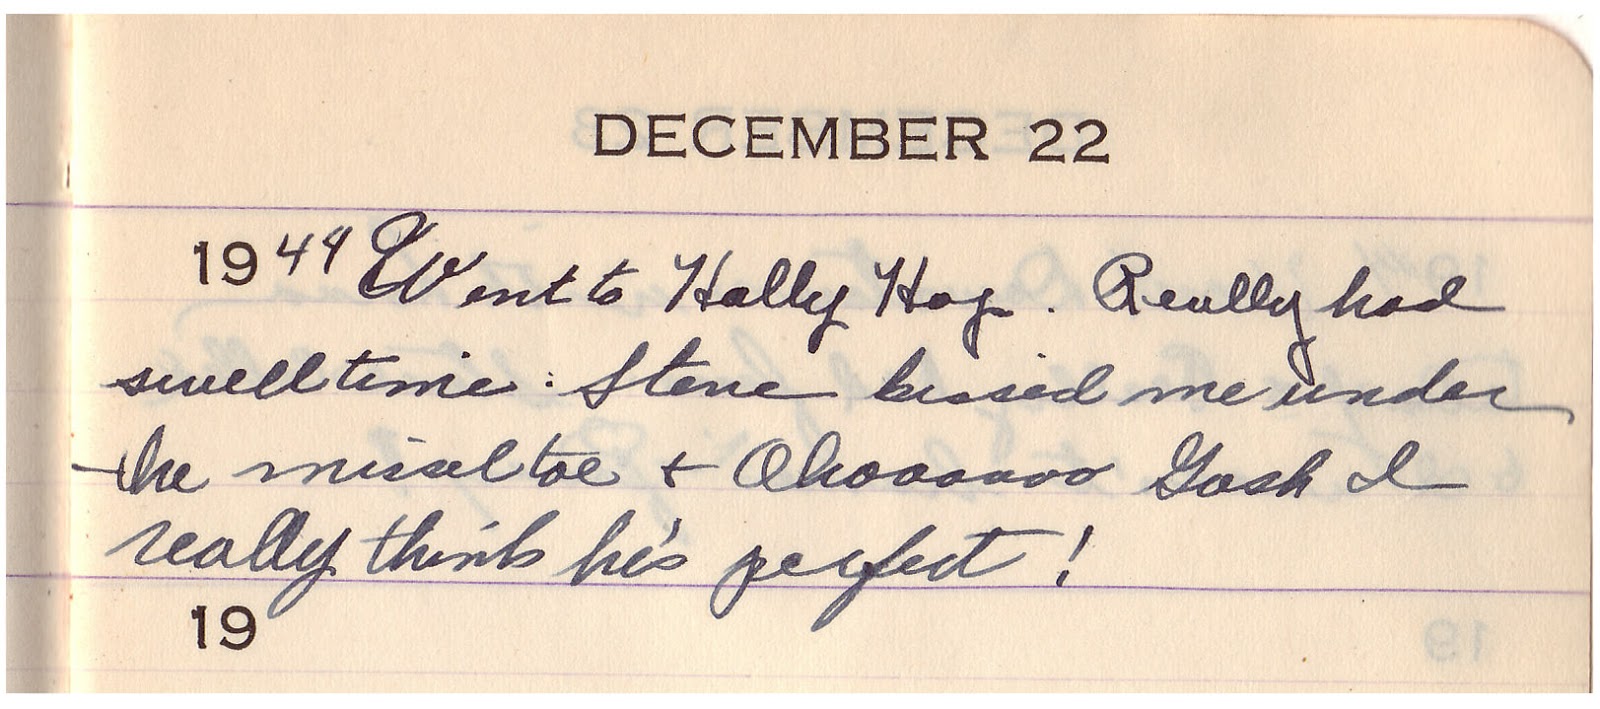 DECEMBER 22
1949 Went to Holly Hop. Really had
swell time. Steve kissed me under
the missel toe + Ohooooooo Gosh I
really think he's perfect!
19